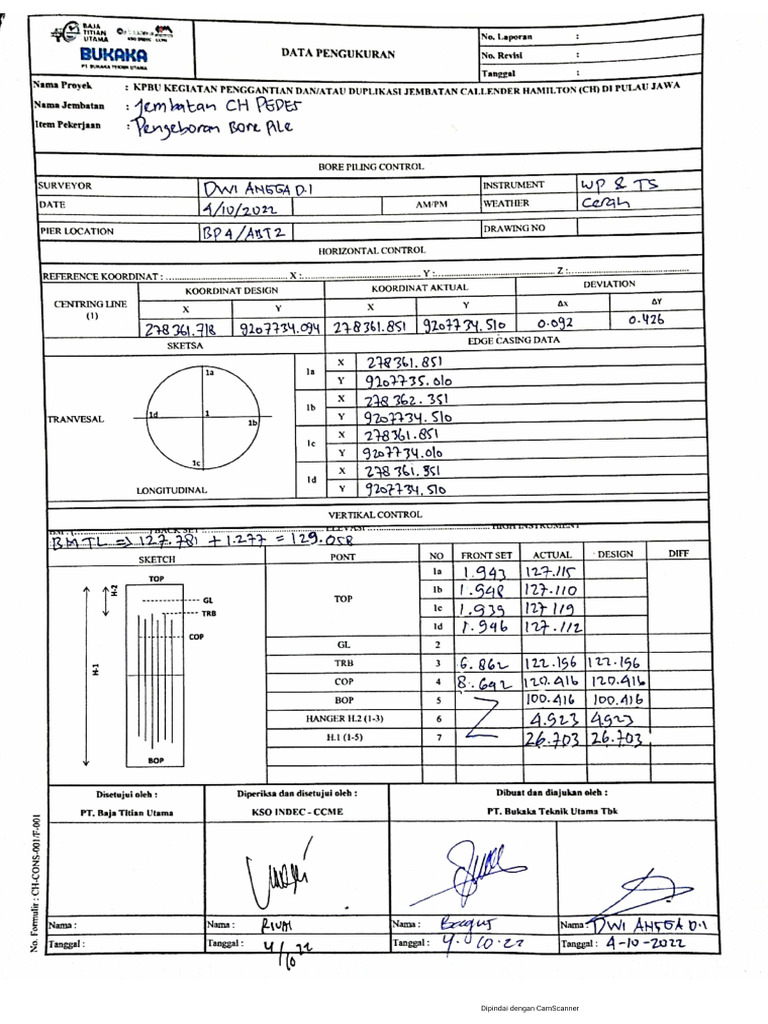 BAJA
TITIAN
UTAMA
KSO INDEC CCME
BUKAKA
PT. BUKAKA TEKNIK UTAMA
DATA PENGUKURAN
No. Laporan :
No. Revisi :
Tanggal :
Nama Proyek : KPBU KEGIATAN PENGGANTIAN DAN/ATAU DUPLIKASI JEMBATAN CALLENDER HAMILTON (CH) DI PULAU JAWA
Nama Jembatan : Jembatan CH PEPES
Item Pekerjaan : Pengeboran Bore Pile
BORE PILING CONTROL
SURVEYOR DWI ANGGA D.I INSTRUMENT WP & TS
DATE 4/10/2022 AM/PM WEATHER Cerah
PIER LOCATION BP4/ABT2 DRAWING NO
HORIZONTAL CONTROL
REFERENCE KOORDINAT : X : Y : Z :
CENTRING LINE (1) KOORDINAT DESIGN KOORDINAT AKTUAL DEVIATION
X Y X Y Δx ΔY
278361.718 9207734.094 278361.851 9207734.510 0.092 0.426
SKETSA EDGE CASING DATA
TRANVESAL
1a
1d 1 1b
1c
LONGITUDINAL
1a X 278361.851
Y 9207735.010
1b X 278362.351
Y 9207734.510
1c X 278361.851
Y 9207734.010
1d X 278361.351
Y 9207734.510
VERTIKAL CONTROL
BACK SET : ELEVASI : HIGH INSTRUMENT
BMTL => 127.781 + 1.277 = 129.058
SKETCH PONT NO FRONT SET ACTUAL DESIGN DIFF
TOP
H-2
GL
TRB
COP
H-1
BOP
TOP 1a 1.943 127.115
1b 1.948 127.110
1c 1.939 127.119
1d 1.946 127.112
GL 2
TRB 3 6.862 122.196 122.196
COP 4 8.642 120.416 120.416
BOP 5 100.416 100.416
HANGER H.2 (1-3) 6 4.923 4.923
H.1 (1-5) 7 26.703 26.703
Disetujui oleh :
PT. Baja Titian Utama
Diperiksa dan disetujui oleh :
KSO INDEC - CCME
Dibuat dan diajukan oleh :
PT. Bukaka Teknik Utama Tbk
Nama : Nama : RIVAI Nama : Bagus Nama : DWI ANGGA D.I
Tanggal : Tanggal : 4/10 22 Tanggal : 4-10-22 Tanggal : 4-10-2022
No. Formulir : CH-CONS-001/F-001
Dipindai dengan CamScanner